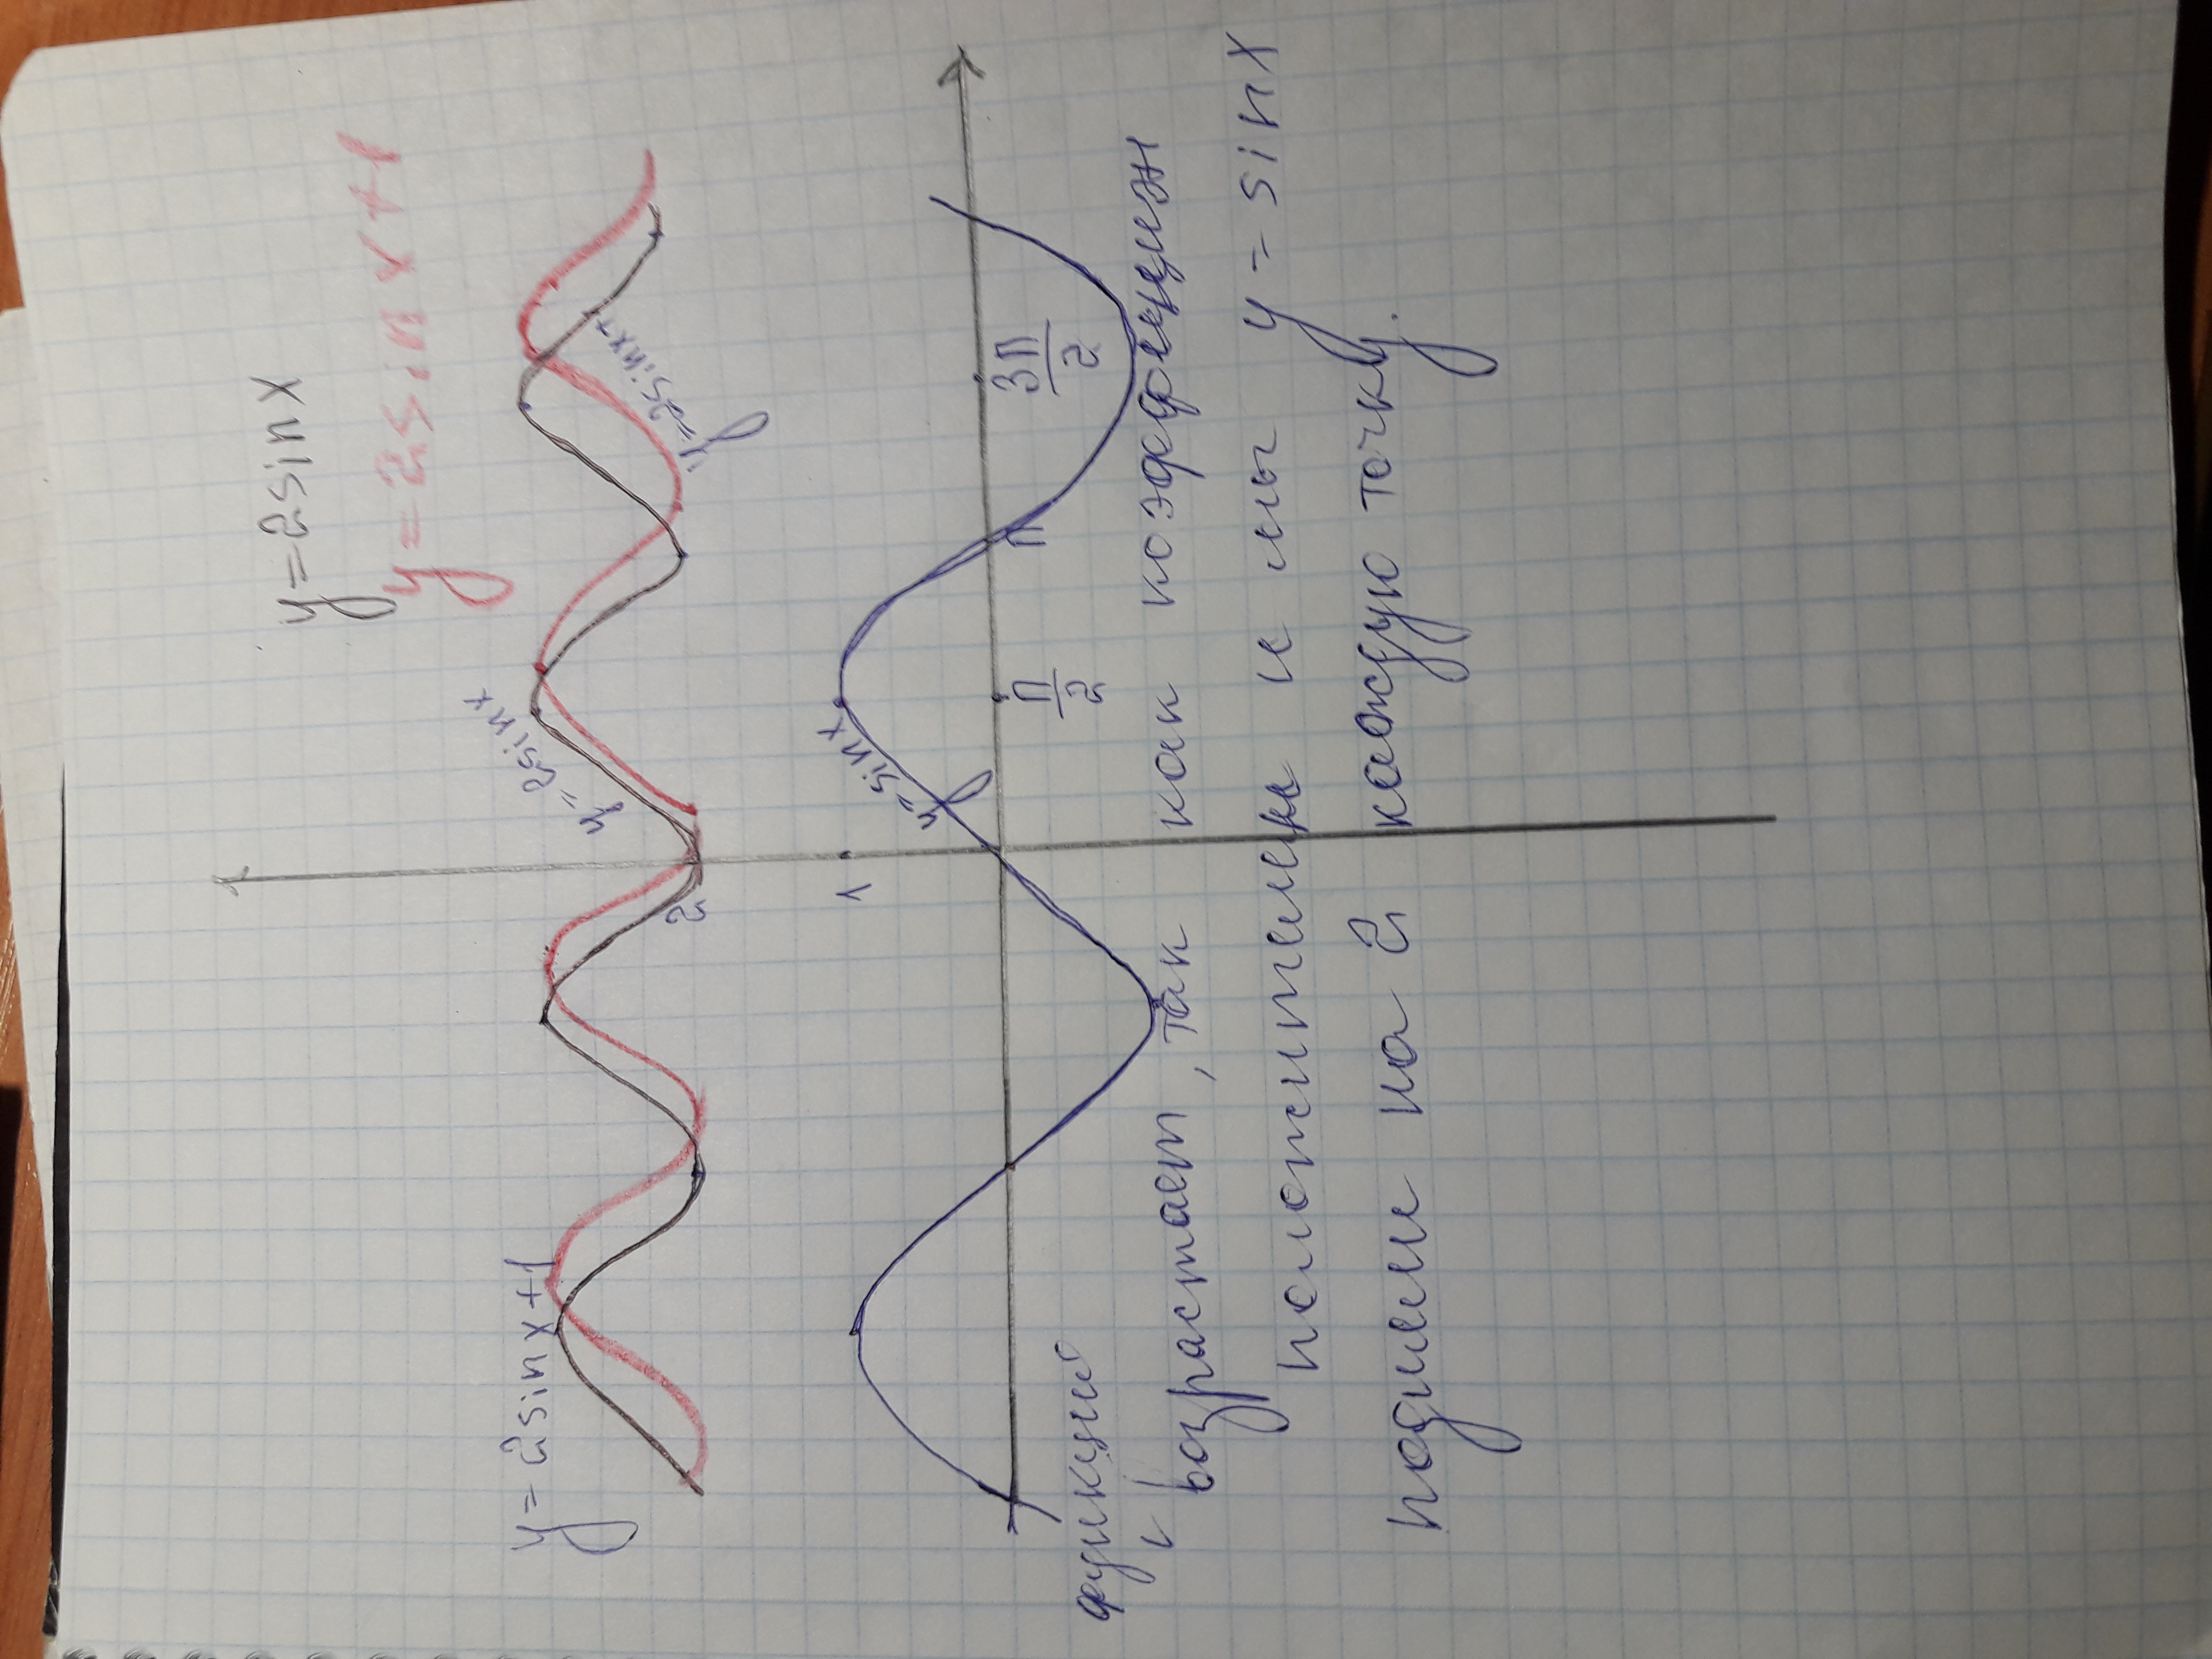 y = 2sinx
y = 2sinx+1
y = 2sinx+1
y = 2sinx
y = 2sinx+
2
1
y = sinx
π/2
π
3π/2
функций
возрастает, так как коэффициен
положителен и мы y = sinx
поднили на 2 каждую точку.